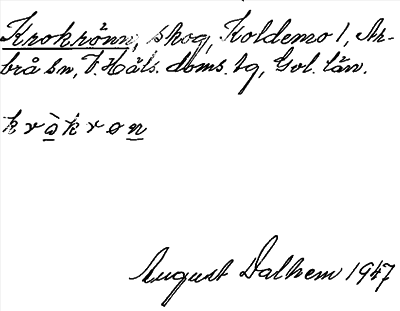 Krokrönn, skog, Koldemo 1, Ar-
brå sn, V. Häls. doms. tg, Gol. län.
kràkron
August Dalhem 1947